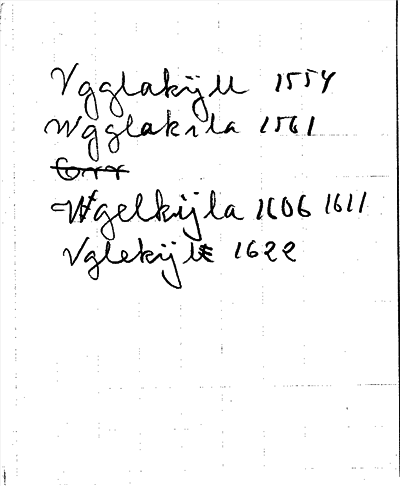 Vgglakijll 1554
Wgglakila 1561
Wgelkijla 1606 1611
Vglekijle 1622